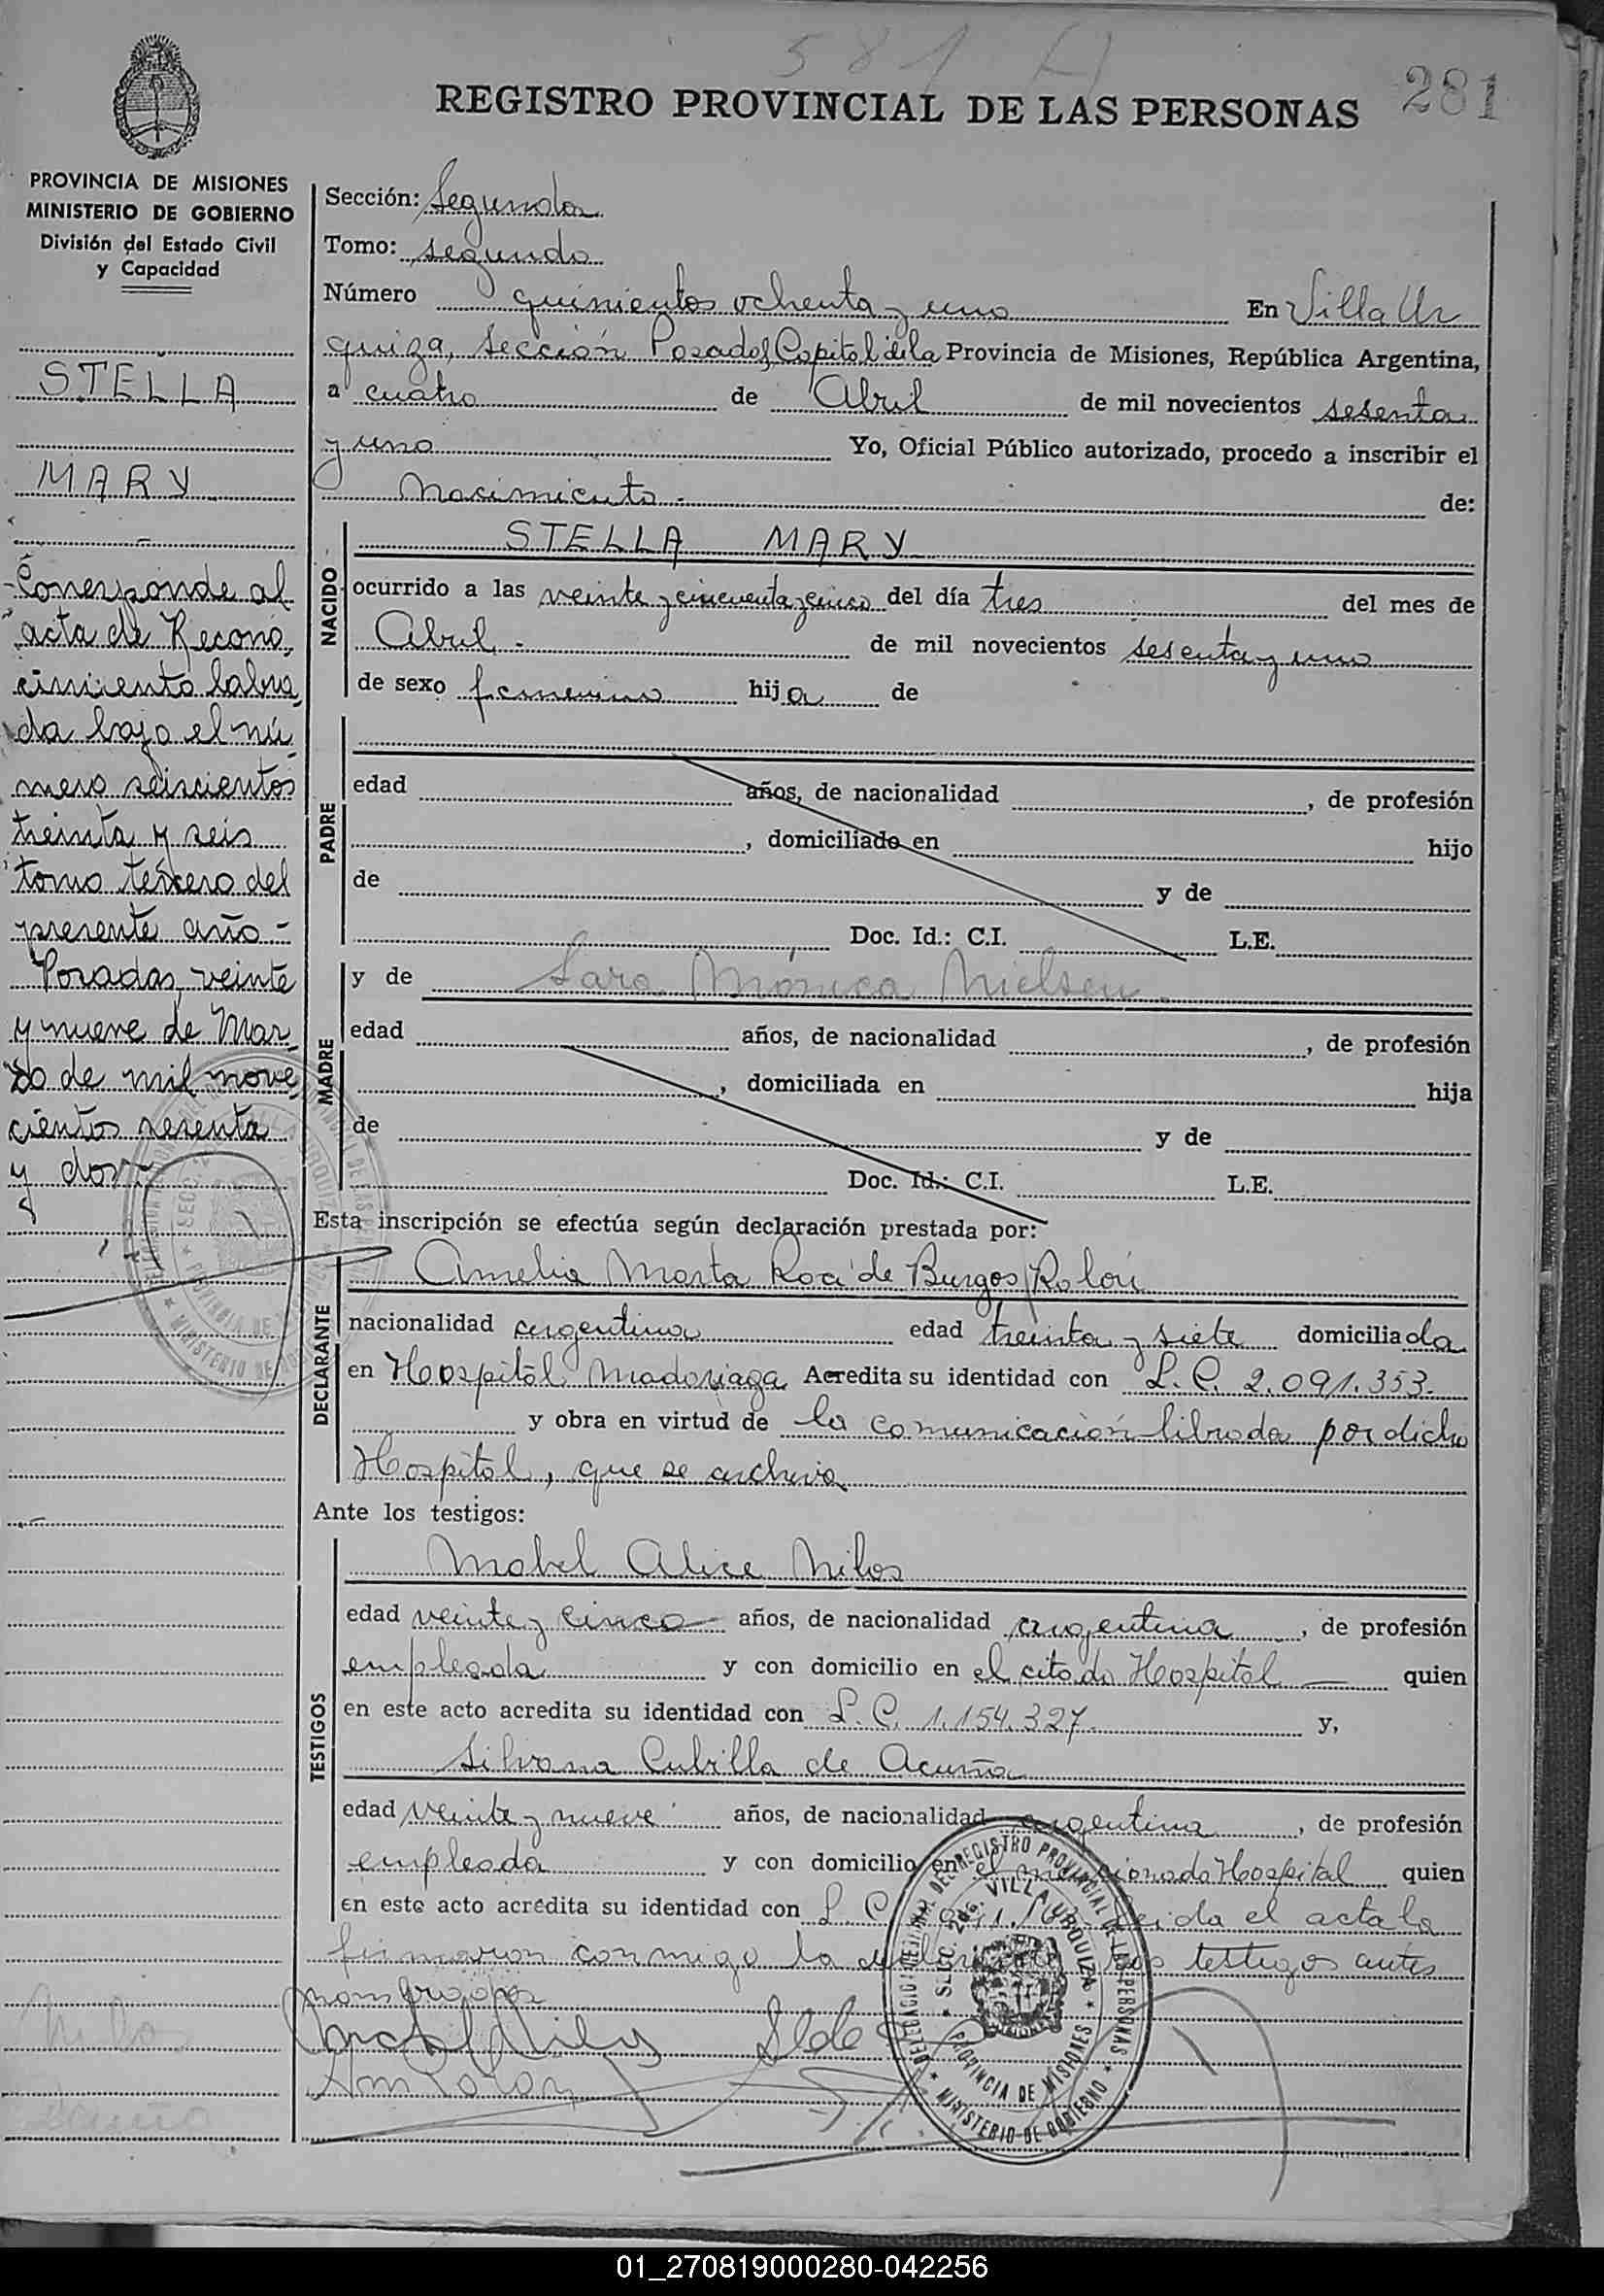 581 A
281
REGISTRO PROVINCIAL DE LAS PERSONAS
PROVINCIA DE MISIONES
MINISTERIO DE GOBIERNO
División del Estado Civil
y Capacidad
STELLA
MARY
Corresponde al
acta de Recono
cimiento labra
da bajo el nú
mero seiscientos
treinta y seis
tomo tercero del
presente año -
Posadas, veinte
y nueve de Mar
zo de mil nove
cientos sesenta
y dos.-
Sección: Segunda
Tomo: segundo
Número quinientos ochenta y uno En Villa Ur
quiza, Sección Posadas, Capital de la Provincia de Misiones, República Argentina,
a cuatro de Abril de mil novecientos sesenta
y uno Yo, Oficial Público autorizado, procedo a inscribir el
Nacimiento.- de:
NACIDO
STELLA MARY
ocurrido a las veinte y cincuenta y cinco del día tres del mes de
Abril.- de mil novecientos sesenta y uno
de sexo femenino hija de
PADRE
edad años, de nacionalidad , de profesión
, domiciliado en hijo
de y de
Doc. Id.: C.I. L.E.
MADRE
y de Sara Mónica Nielsen.
edad años, de nacionalidad , de profesión
, domiciliada en hija
de y de
Doc. Id.: C.I. L.E.
Esta inscripción se efectúa según declaración prestada por:
DECLARANTE
Amelia Marta de Burgos Rolón
nacionalidad argentina edad treinta y siete domiciliada
en Hospital Madariaga Acredita su identidad con L.C. 2.091.353.
y obra en virtud de la comunicación librada por dicho
Hospital, que se archiva
Ante los testigos:
TESTIGOS
Mabel Alice Milos
edad veinte y cinco años, de nacionalidad argentina, de profesión
empleada y con domicilio en el citado Hospital quien
en este acto acredita su identidad con L.C. 1.154.327. y,
Silvana Cubilla de Acuña
edad veinte y nueve años, de nacionalidad argentina, de profesión
empleada y con domicilio en el mencionado Hospital quien
en este acto acredita su identidad con L.C. Leida el acta la
firmaron conmigo la los testigos antes
DELEGACION DEL REGISTRO PROVINCIAL DE LAS PERSONAS
SECC. 2da. VILLA URQUIZA
PROVINCIA DE MISIONES
MINISTERIO DE GOBIERNO
01_270819000280-042256